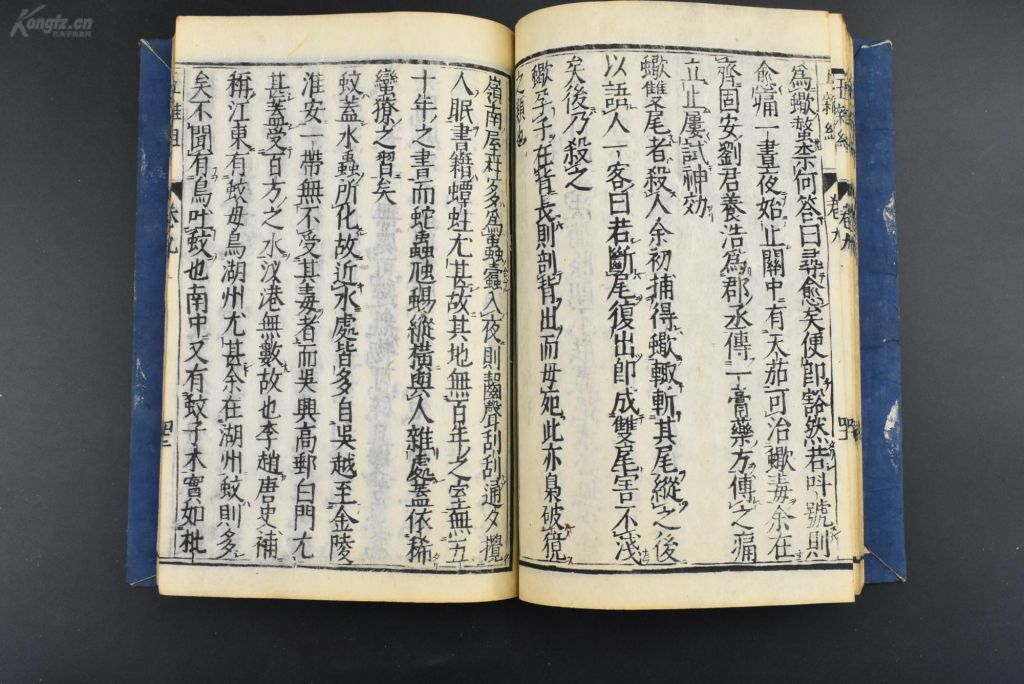 Kongfz.cn
孔夫子旧书网
為蠍螫柰何答曰尋愈矣便卽豁然若呌號則
愈痛一晝夜始止關中有天茄可治蠍毒余在
齊固安劉君養浩為郡丞傳一膏藥方傅之痛
立止屢試神効
蠍雙尾者殺人余初捕得蠍輙斬其尾縱之後
以語人一客曰若斷尾復出卽成雙尾害不淺
矣後乃殺之
蠍孕子在背長則剖背出而母死此亦梟破獍
之類也
卷九
嶺南屋柱多為蟲蠹入夜則齧聲刮刮通夕攪
人眠書籍蟫蛀尤甚故其地無百年之室無五
十年之書而蛇蟲虺蜴縱橫與人雜處蓋依稀
蠻獠之習矣
蚊蓋水蟲所化故近水處皆多自吳越至金陵
淮安一帶無不受其毒者而吳興高郵白門尤
甚蓋受百方之水汊港無數故也李肇唐史補
稱江東有蚊母鳥湖州尤甚余在湖州蚊則多
矣不聞有鳥吐蚊也南中又有蚊子木實如枇
五雜俎
卷九